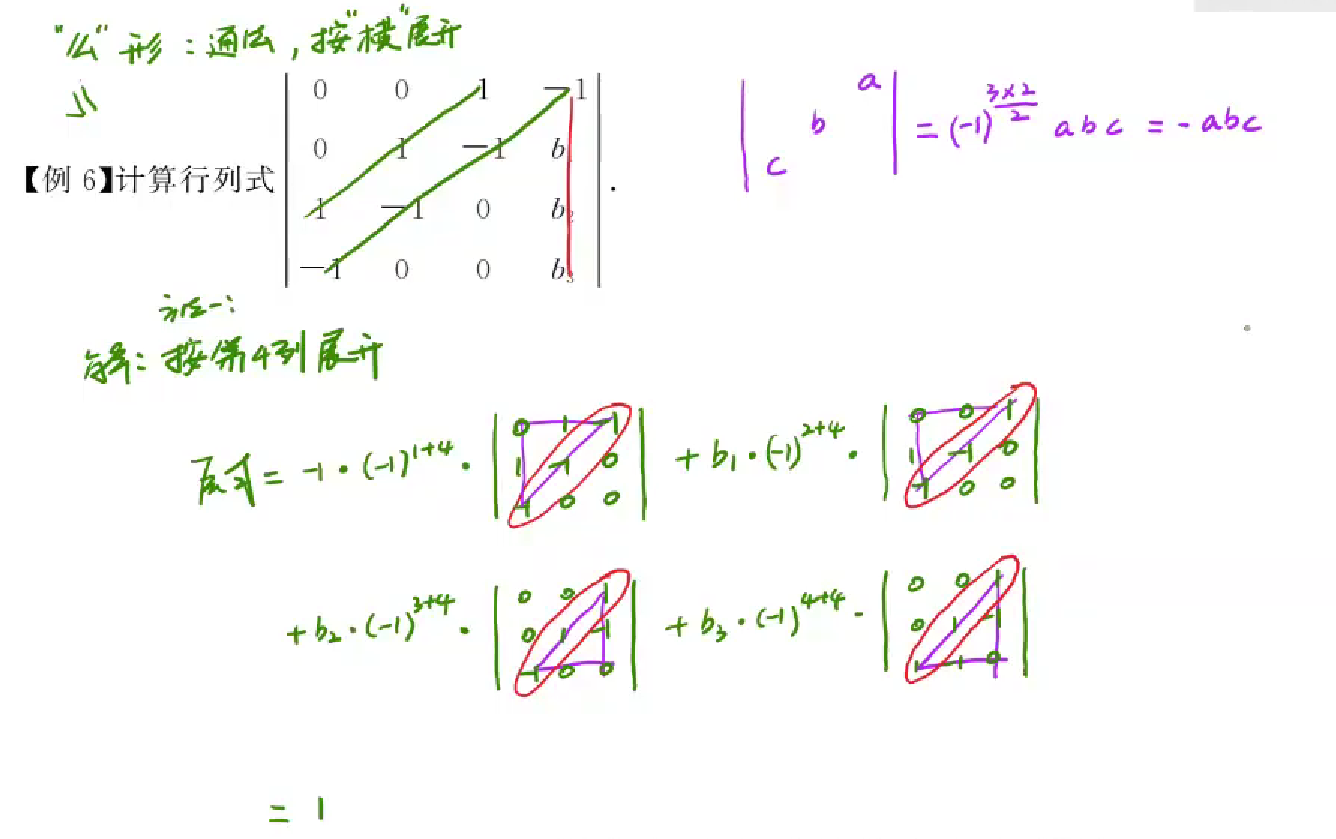 "厶"形：通法，按"横"展开
【例 6】计算行列式
0 0 1 −1
0 1 −1 b₁
1 −1 0 b₂
−1 0 0 b₃
.
a
b
c
= (-1)^{\frac{3×2}{2}} abc = -abc
方法一：
解：按第4列展开
原式 = -1·(-1)^{1+4}·
0 1 -1
1 -1 0
-1 0 0
+ b₁·(-1)^{2+4}·
0 0 1
1 -1 0
-1 0 0
+ b₂·(-1)^{3+4}·
0 0 1
0 1 -1
-1 0 0
+ b₃·(-1)^{4+4}·
0 0 1
0 1 -1
1 -1 0
= 1